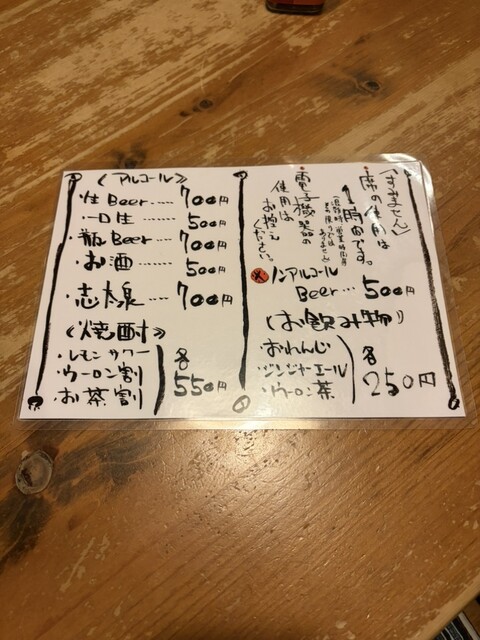 《アルコール》
・生Beer……700円
・一口生……500円
・瓶Beer……700円
・お酒……500円
・志太泉……700円
《焼酎》
・レモンサワー
・ウーロン割
・お茶割
各
550円
〈すみません〉
・席の使用は
1時間です。
・電子機器の
使用は
お控え
ください。
ノンアルコール
Beer…500円
(お飲み物)
・おれんじ
・ジンジャーエール
・ウーロン茶
各
250円